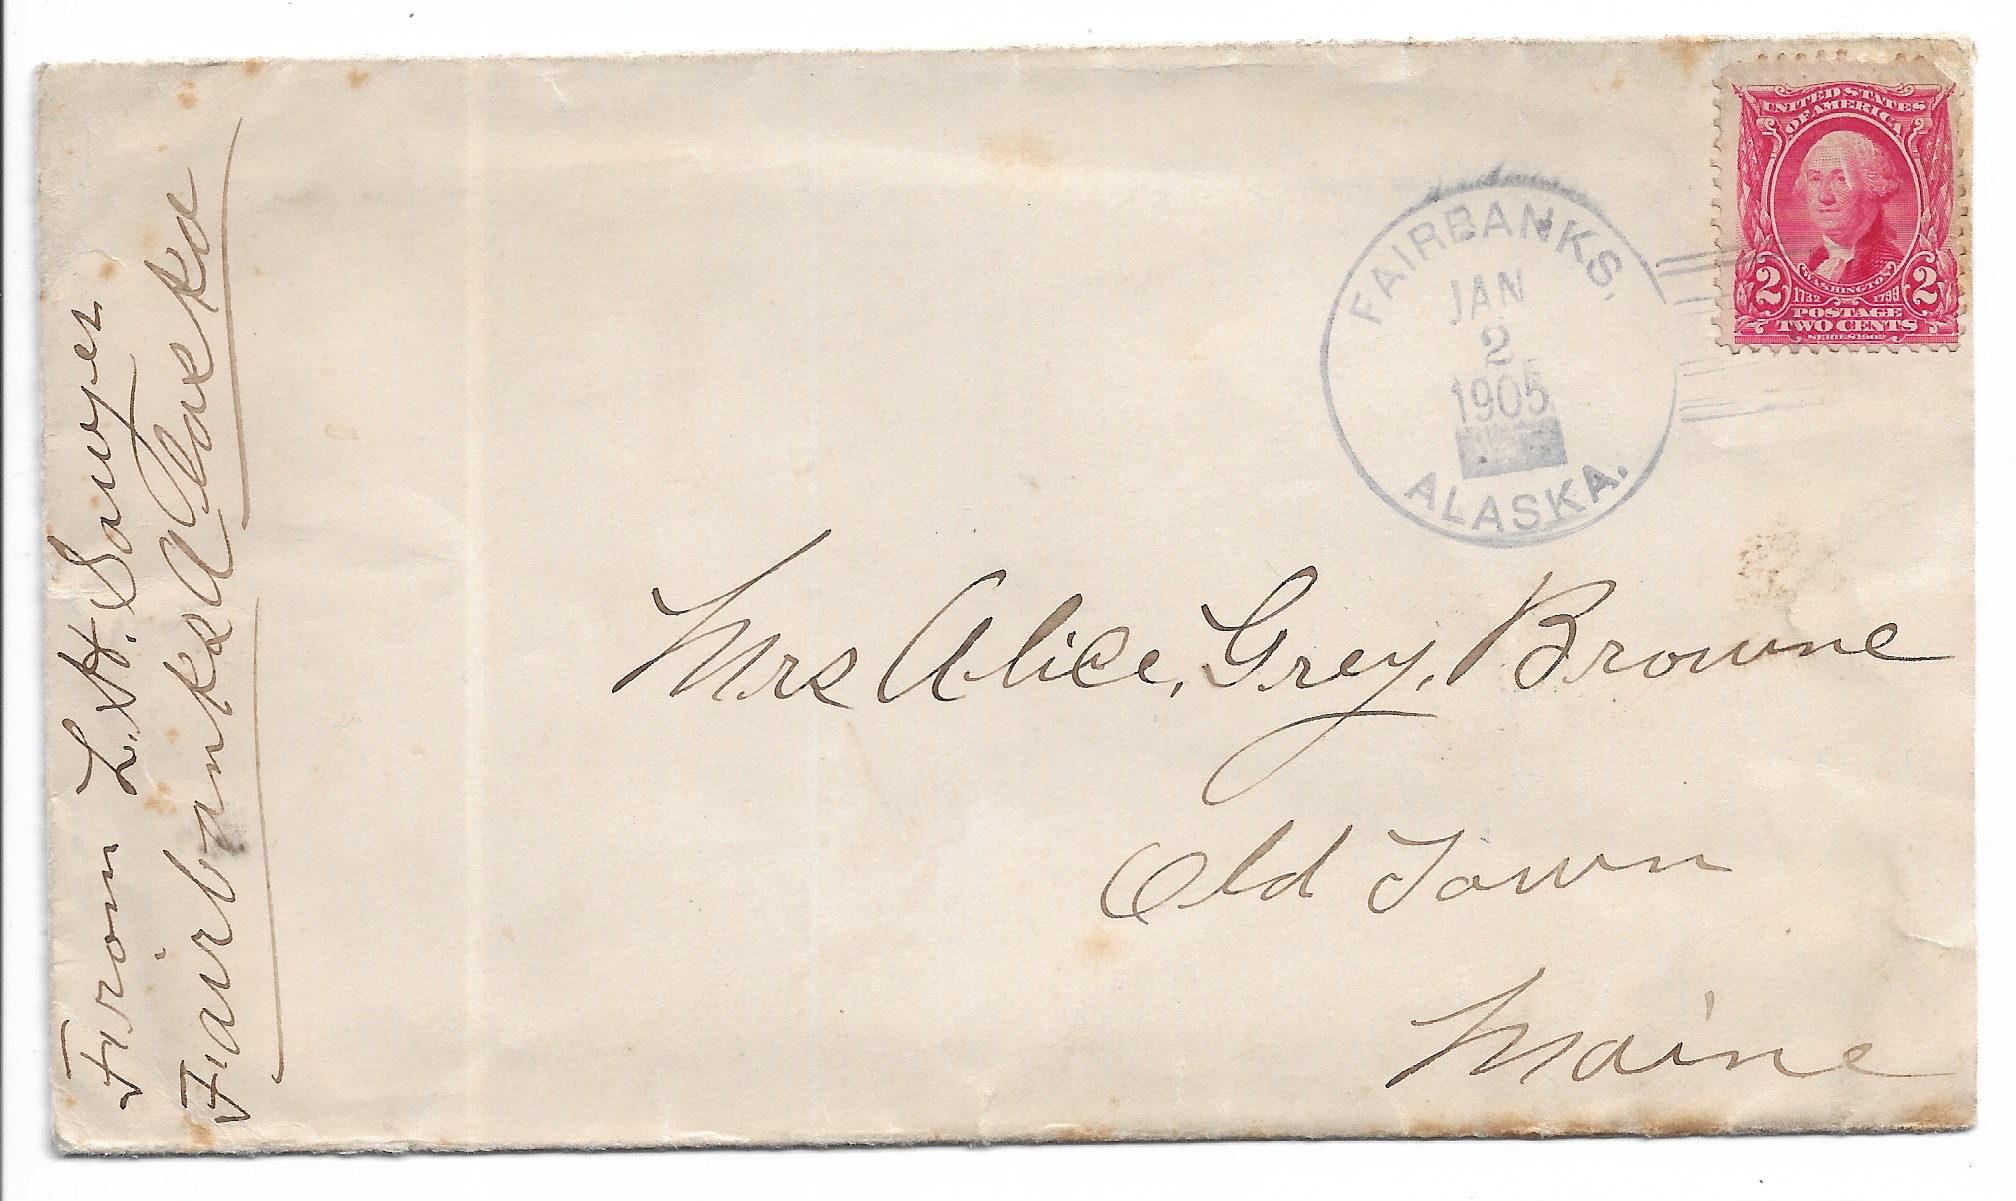 From L. H. Sawyer
Fairbanks Alaska
FAIRBANKS,
JAN
2
1905
ALASKA.
UNITED STATES
OF AMERICA
WASHINGTON
2 1732 1799 2
POSTAGE
TWO CENTS
SERIES 1902
Mrs Alice, Grey, Browne
Old Town
Maine